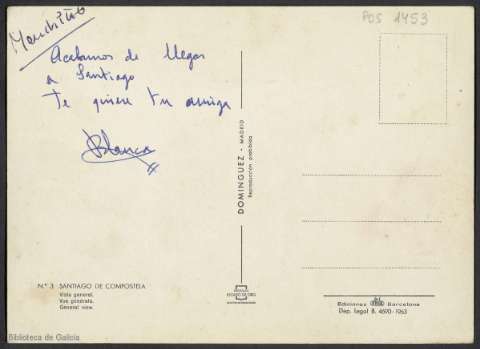 Acabamos de llegar
a Santiago
te quiere tu amiga
Blanca
POS 1453
DOMINGUEZ - MADRID
Reproducción prohibida
N.º 3 SANTIAGO DE COMPOSTELA
Vista general.
Vue générale.
General view.
Ediciones Barcelona
Dep. Legal B. 4670-1963
Biblioteca de Galicia